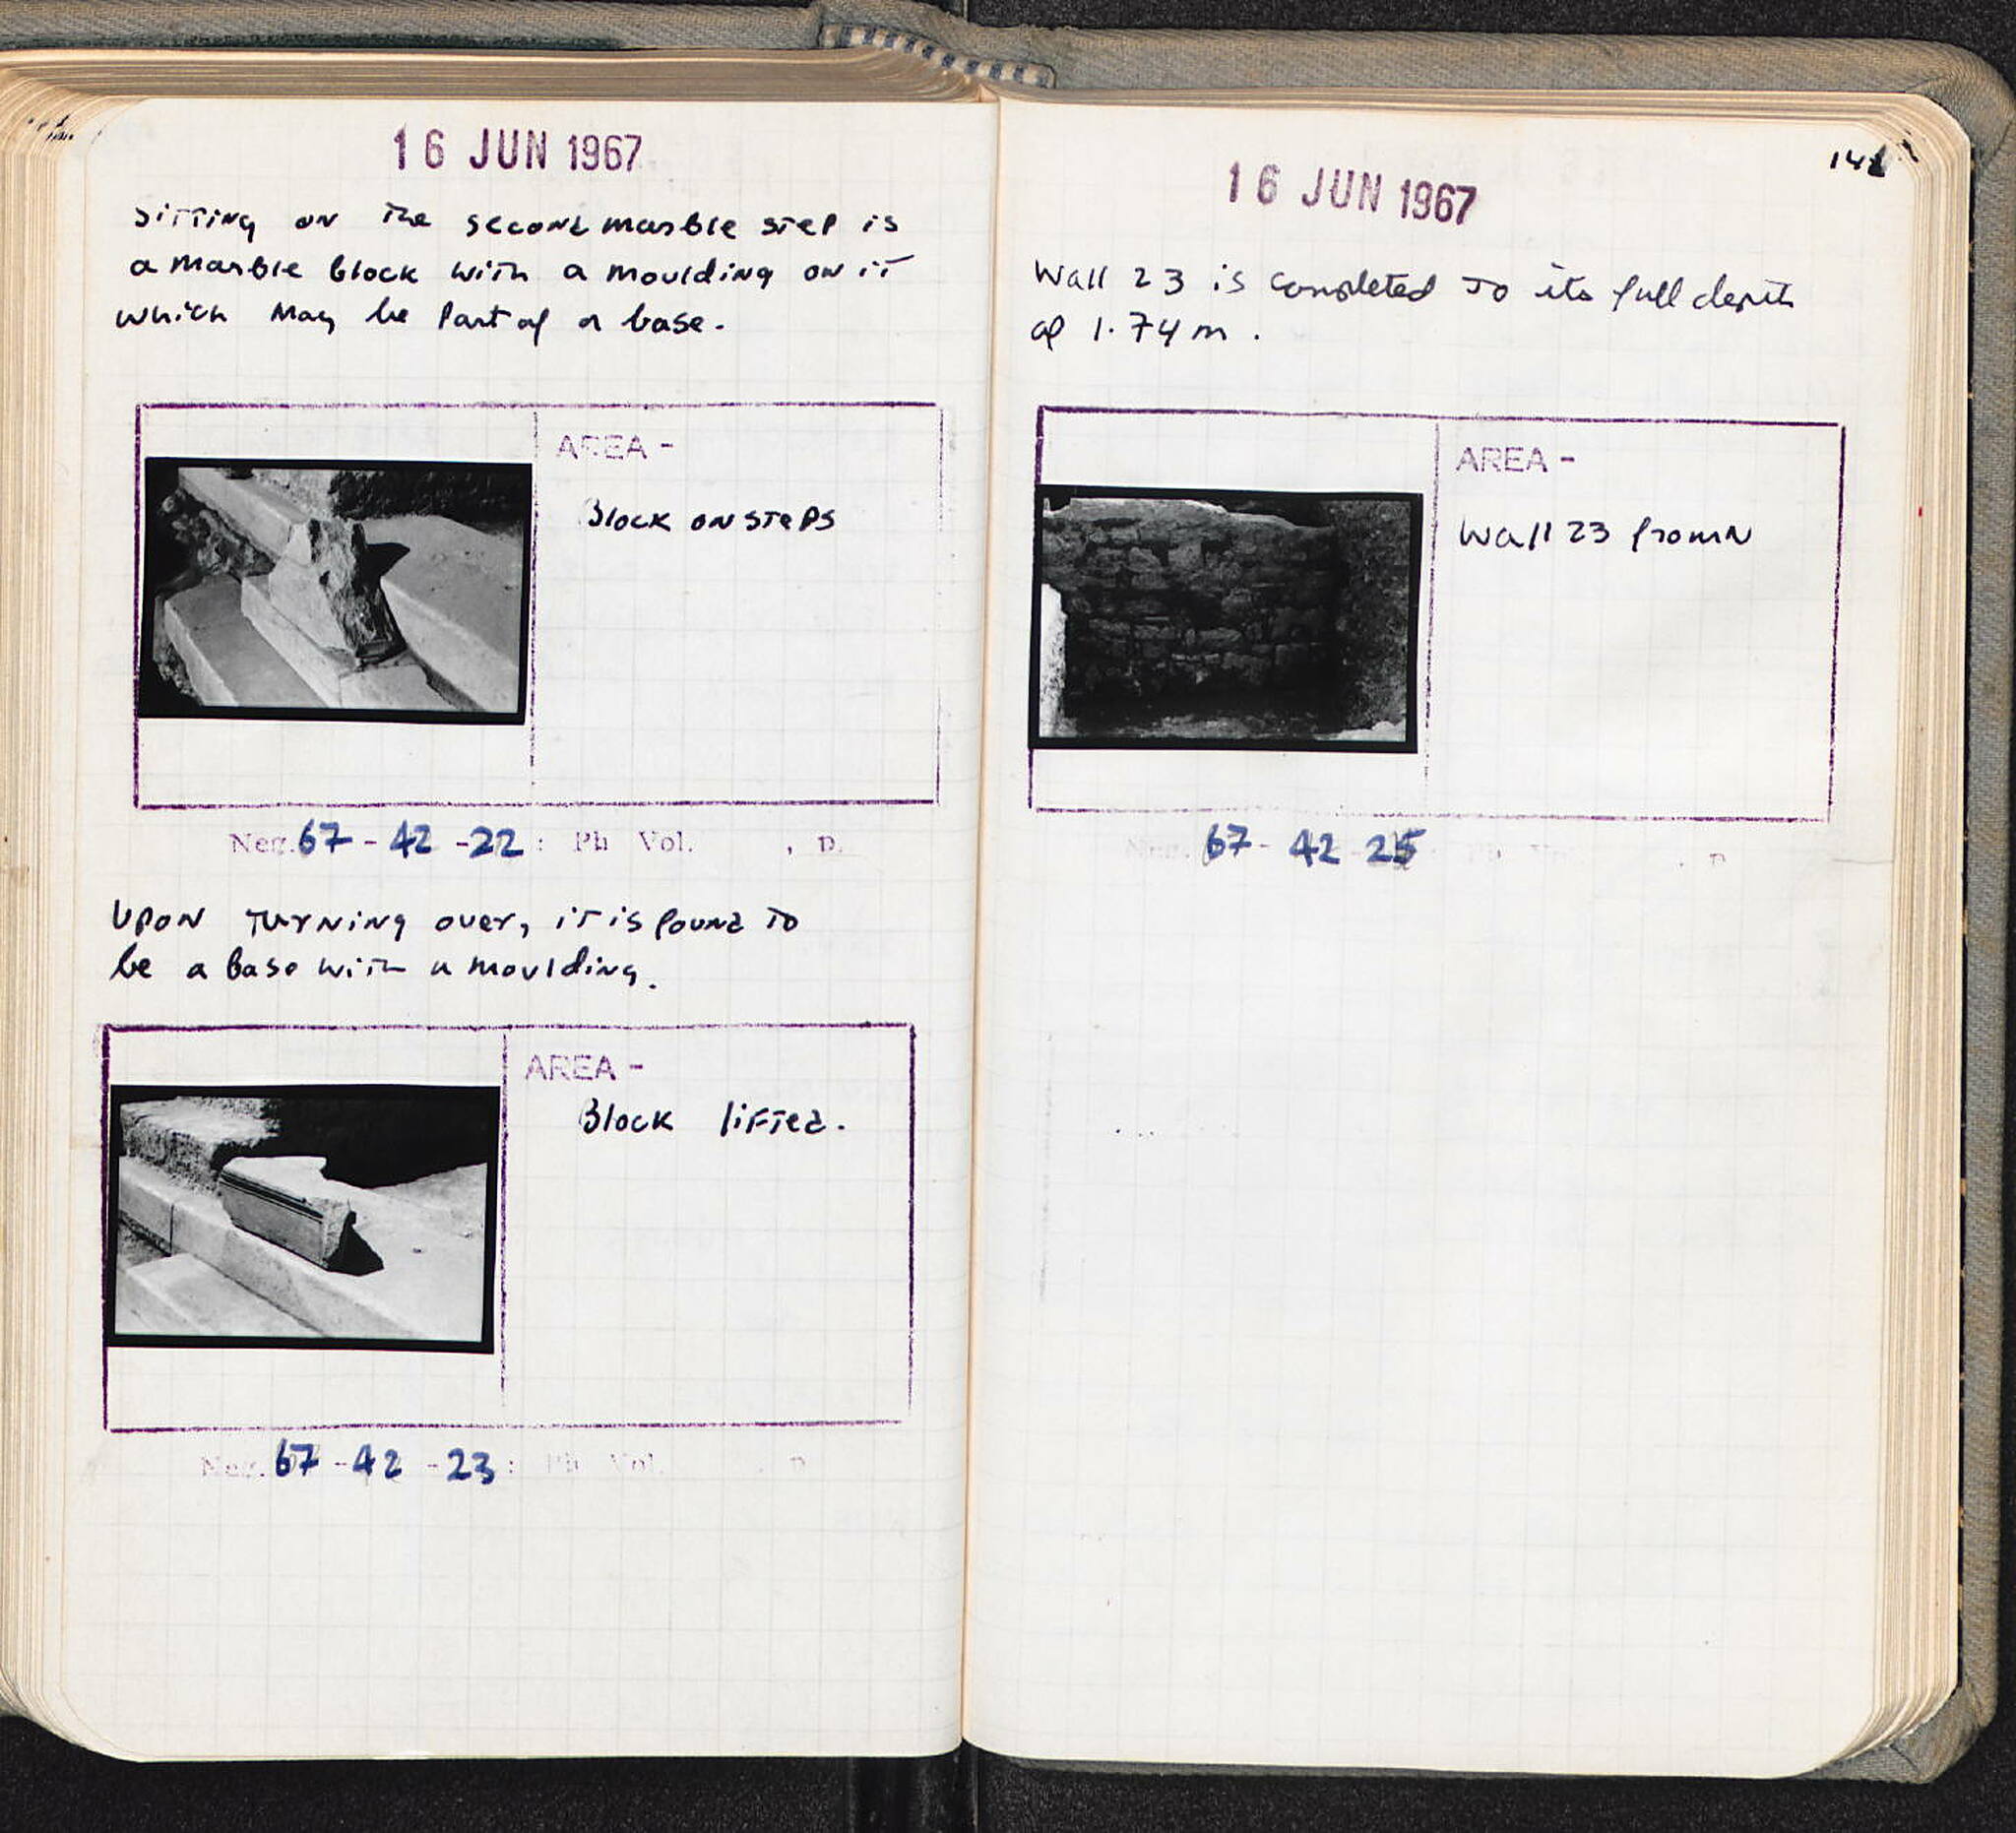 16 JUN 1967
Sitting on the second marble step is
a marble block with a moulding on it
which may be part of a base.
AREA -
Block on steps
Neg. 67 - 42 - 22 : Ph Vol. , p.
Upon turning over, it is found to
be a base with a moulding.
AREA -
Block lifted.
Neg. 67 - 42 - 23 : Ph Vol. , p
16 JUN 1967
Wall 23 is completed to its full depth
of 1.74 m.
AREA -
Wall 23 from N
Neg. 67 - 42 25 Ph , p